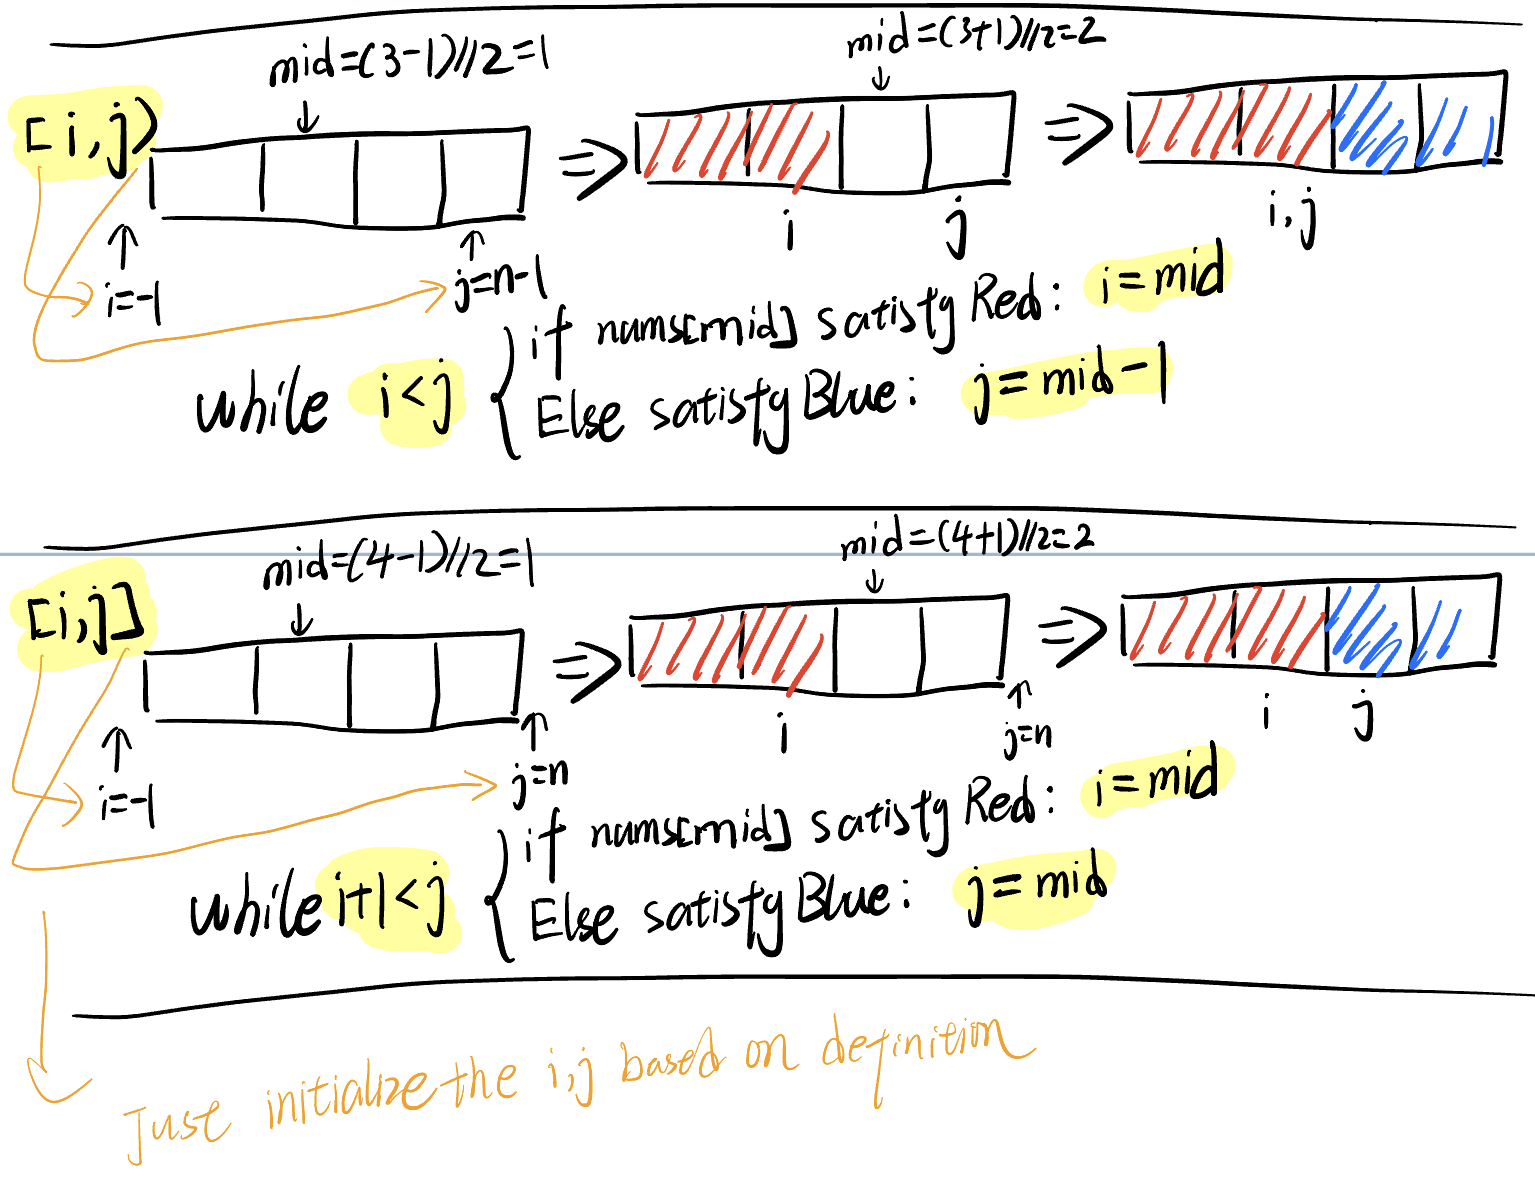 mid=(3-1)//2=1
mid=(3+1)//2=2
[i,j)
i
j
i,j
i=-1
j=n-1
if nums[mid] satisfy Red: i=mid
while i<j
Else satisfy Blue: j=mid-1
mid=(4-1)//2=1
mid=(4+1)//2=2
[i,j]
i
j=n
i
j
i=-1
j=n
if nums[mid] satisfy Red: i=mid
while i+1<j
Else satisfy Blue: j=mid
Just initialize the i,j based on definition